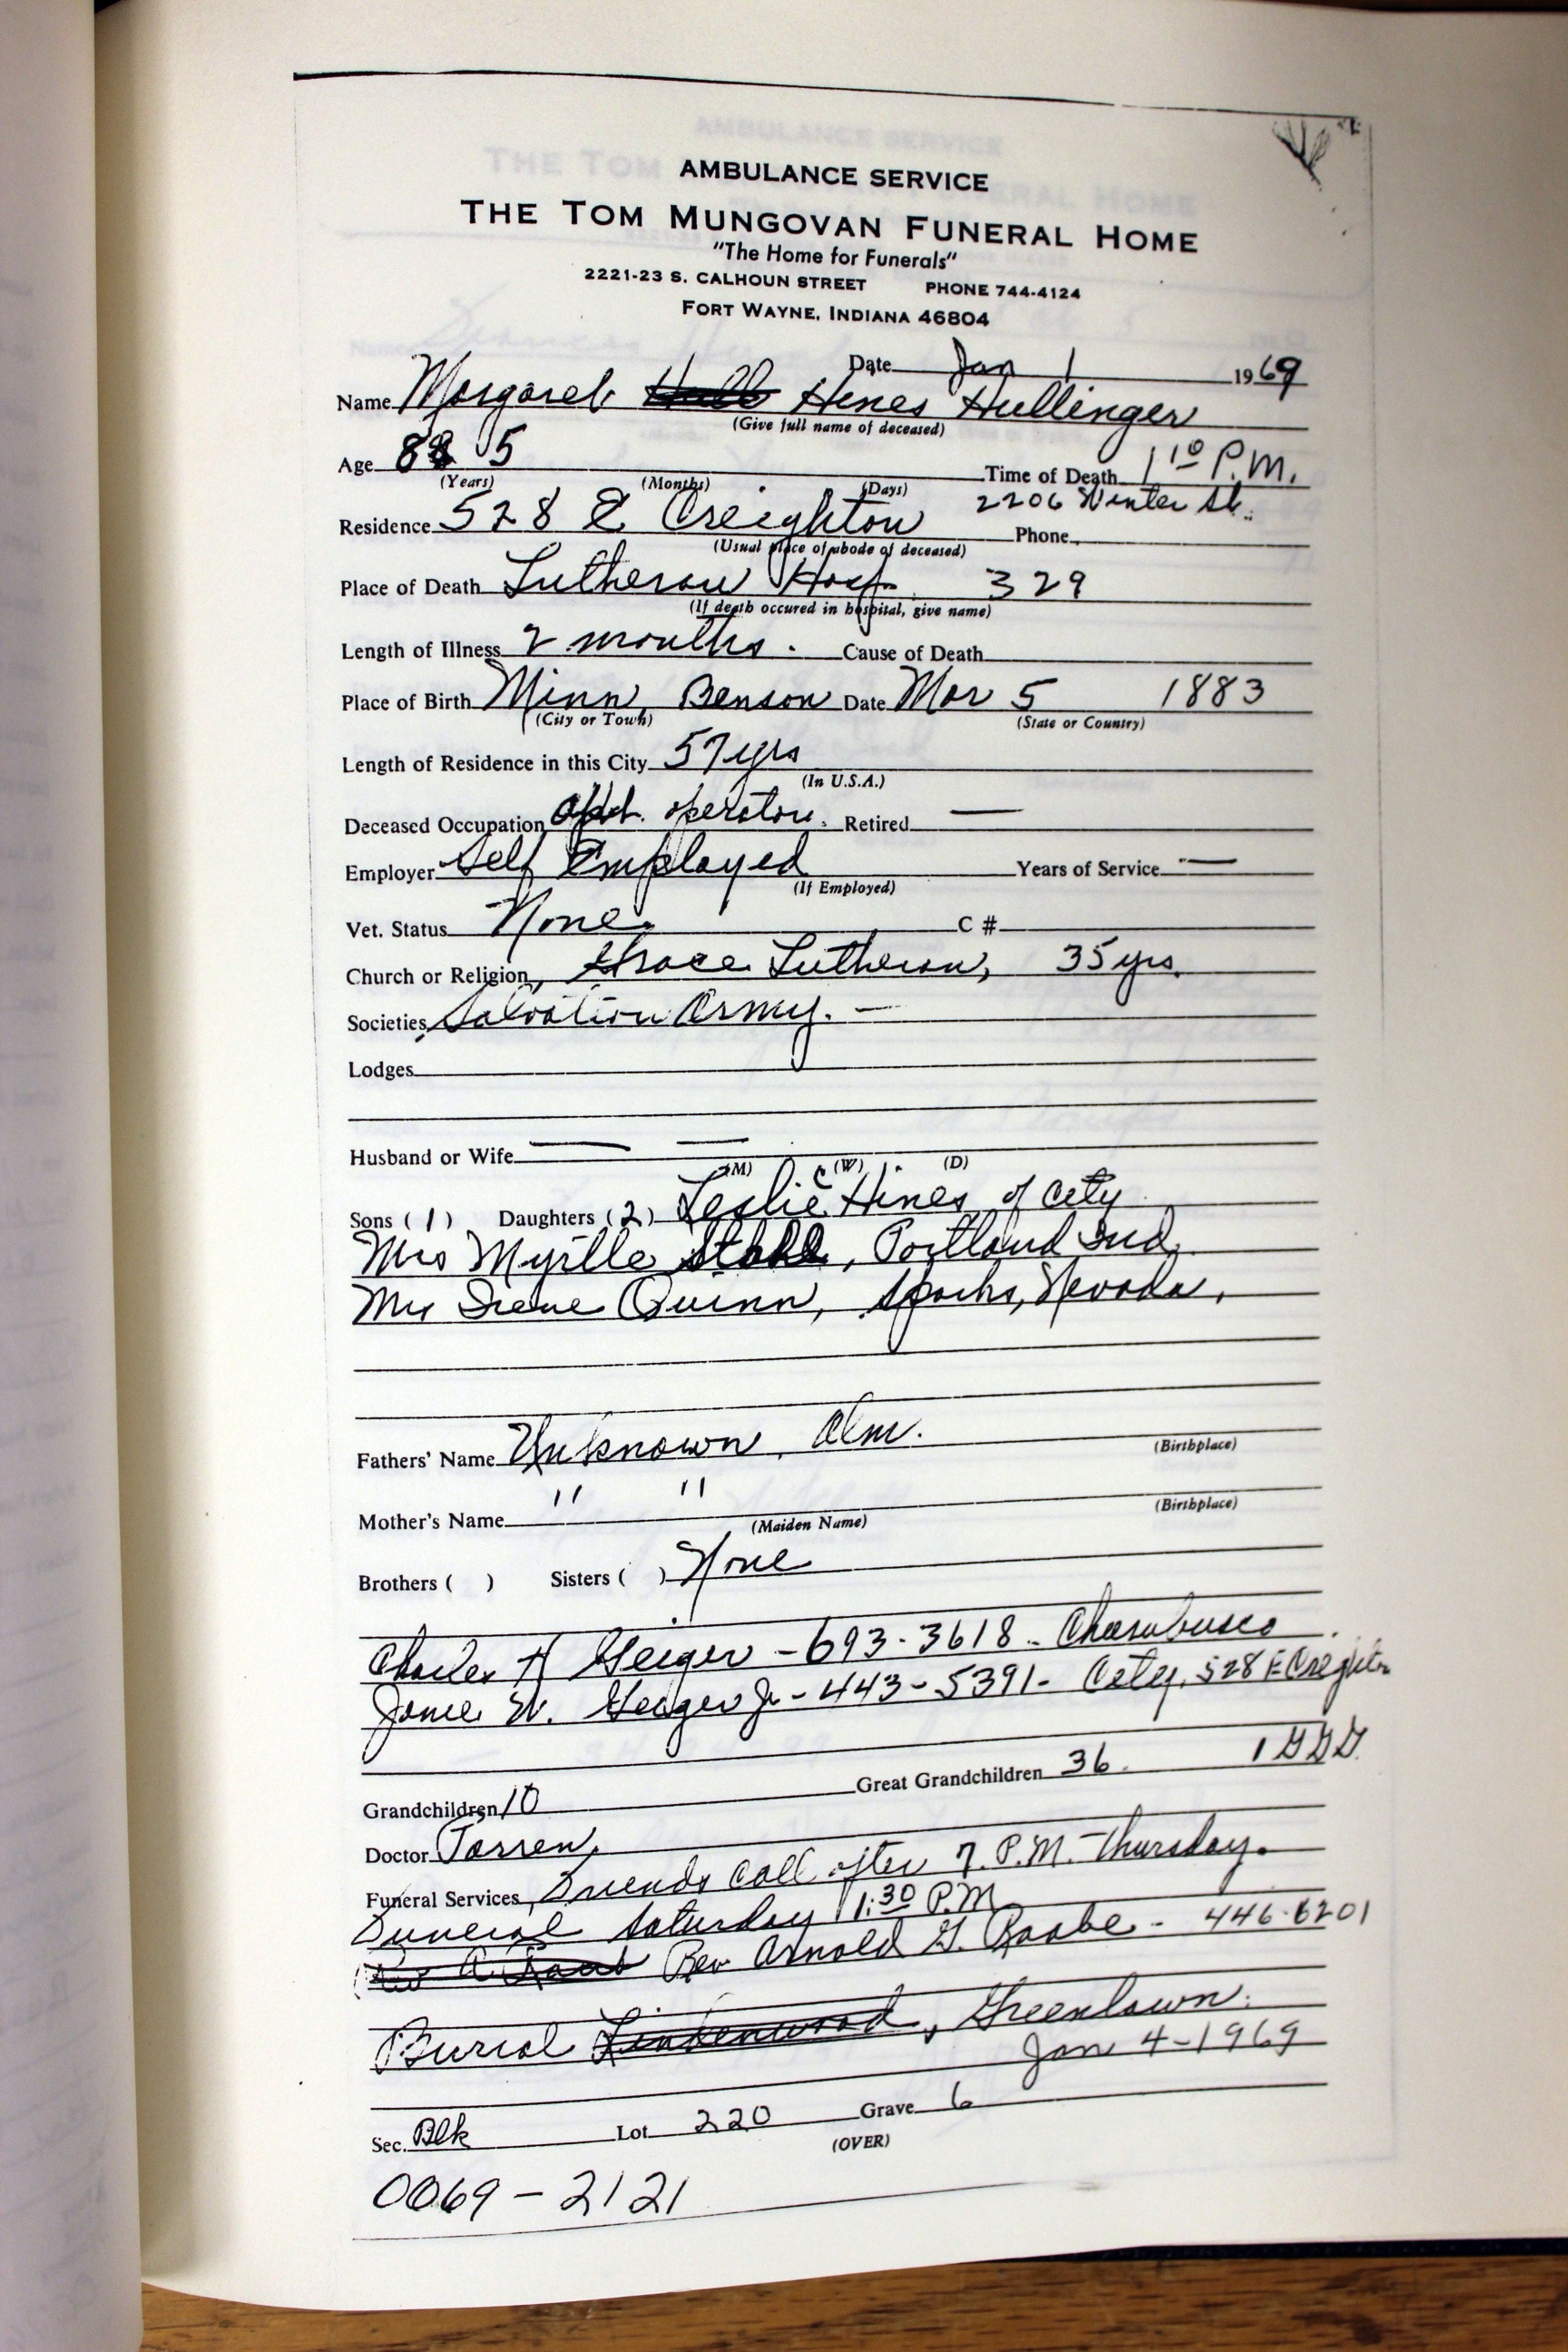 AMBULANCE SERVICE
THE TOM MUNGOVAN FUNERAL HOME
"The Home for Funerals"
2221-23 S. CALHOUN STREET PHONE 744-4124
FORT WAYNE, INDIANA 46804
Date Jan 1 1969
Name Margaret Hines Hullinger
(Give full name of deceased)
Age 85 Time of Death 1 10 P.M.
(Years) (Months) (Days)
2206 Winter St.
Residence 528 E Creighton Phone
(Usual place of abode of deceased)
Place of Death Lutheran Hosp. 329
(If death occured in hospital, give name)
Length of Illness 2 months. Cause of Death
Place of Birth Minn, Benson Date Mar 5 1883
(City or Town) (State or Country)
Length of Residence in this City 57 yrs
(In U.S.A.)
Deceased Occupation Apt. operator. Retired —
Employer Self Employed Years of Service —
(If Employed)
Vet. Status None. C #
Church or Religion, Grace Lutheran, 35 yrs.
Societies, Salvation Army. —
Lodges
Husband or Wife — —
(M) (W) (D)
Sons (1) Daughters (2) Leslie Hines of City
Mrs Myrtle Stahl, Portland Ind.
Mrs Irene Quinn, Sparks, Nevada,
Fathers' Name Unknown, Alm. (Birthplace)
Mother's Name " " (Birthplace)
(Maiden Name)
Brothers ( ) Sisters ( ) None
Charles H Geiger - 693-3618 - Churubusco
James W. Geiger Jr - 443-5391 - City, 528 E Creighton
Grandchildren 10 Great Grandchildren 36 1 GGG
Doctor
Funeral Services, Friends call after 7. P.M. Thursday.
Funeral Saturday 1:30 P.M
Rev Arnold G. Raabe - 446-6201
Burial Lindenwood, Greenlawn.
Jan 4-1969
Sec. Blk Lot 220 Grave 6
(OVER)
0069-2121